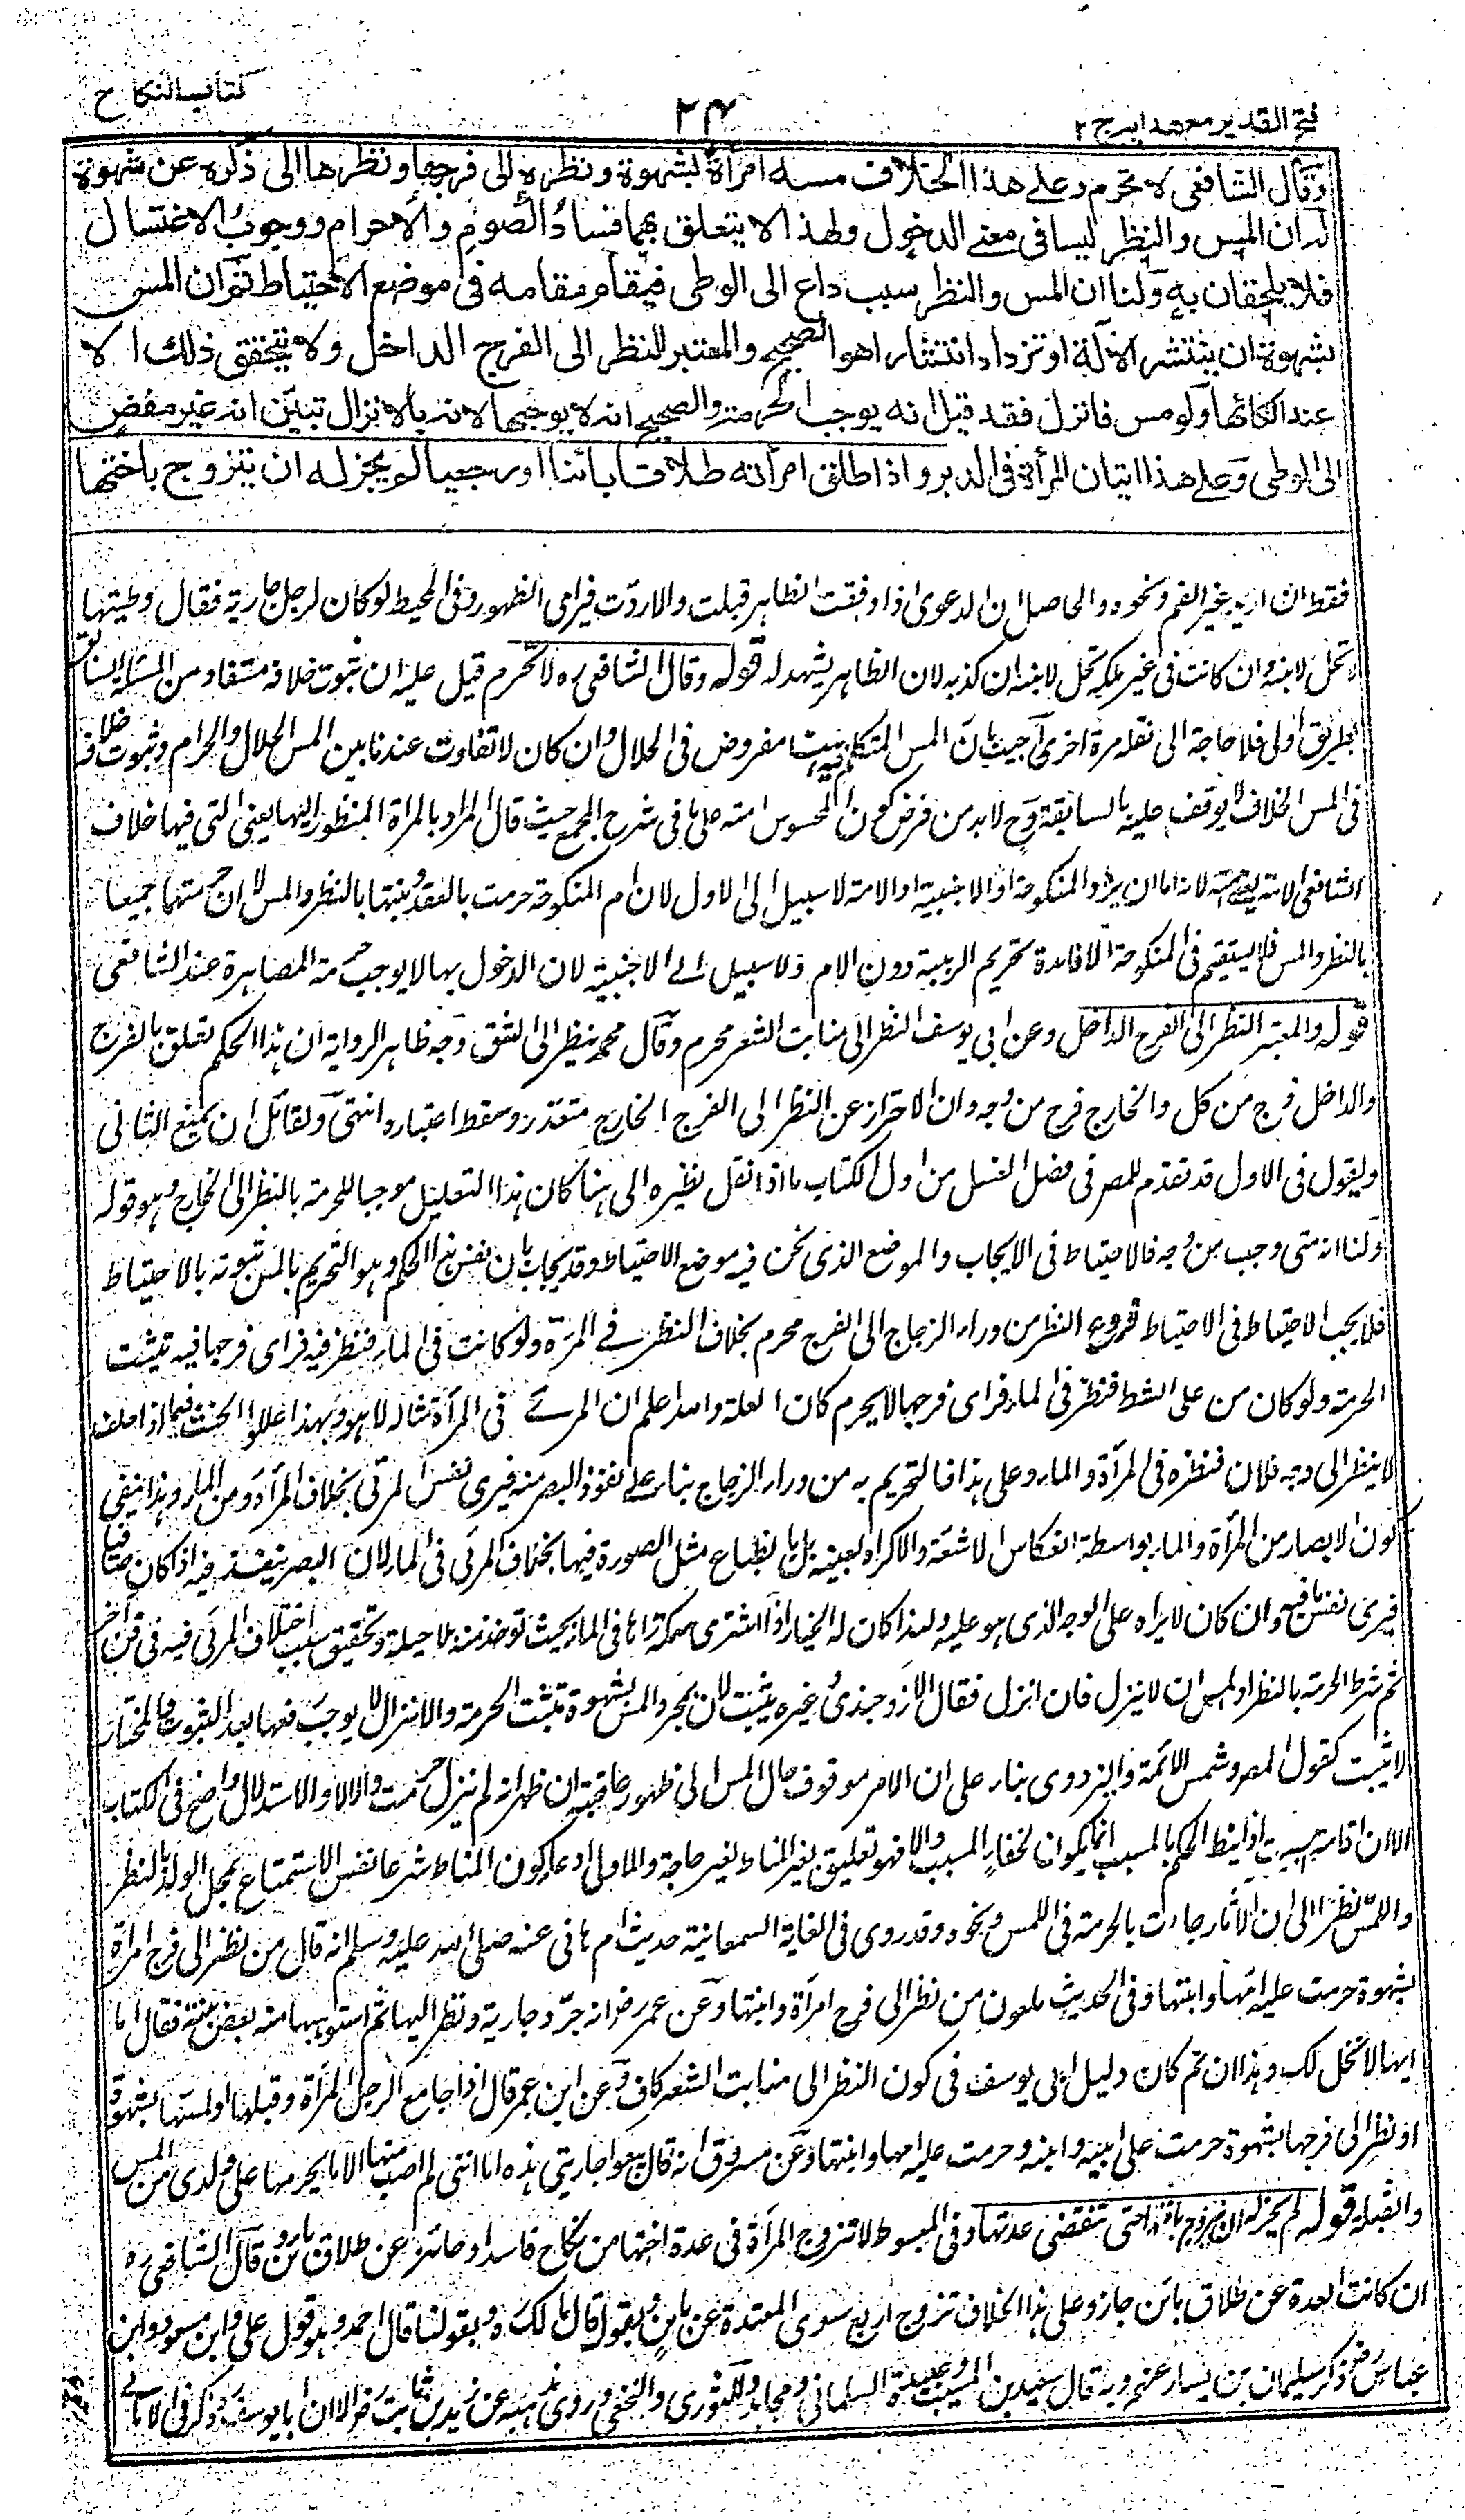 فتح القدير مع هدايه ج ٢
٢٤
كتاب النكاح
وقال الشافعى لا تحرم وعلے هذا الخلاف مسه امرأة بشهوة ونظره الى فرجها ونظرها الى ذكره عن شهوة
له ان المس والنظر ليسا فى معنے الدخول ولهذا لا يتعلق بهما فساد الصوم والاحرام ووجوب الاغتسال
فلا يلحقان به ولنا ان المس والنظر سبب داع الى الوطى فيقام مقامه فى موضع الاحتياط ثم ان المس
بشهوة ان ينتشر الآلة او تزداد انتشارا هو الصحيح والمعتبر النظر الى الفرج الداخل ولا يتحقق ذلك الا
عند اتكائها ولو مس فانزل فقد قيل انه يوجب الحرمة والصحيح انه لا يوجبها لانه بالانزال تبين انه غير مفض
الى الوطى وعلے هذا اتيان المرأة فى الدبر واذا طلق امرأته طلاقا بائنا او رجعيا لم يجز له ان يتزوج باختها
فقط ان اريد غير الفم ونحوه والحاصل ان الدعوى اذا وفقت الظاهر قبلت والا ردت فيراعى الظهور وفى المحيط لو كان لرجل جارية فقال وطيتها
لا تحل لابنه وان كانت فى غير ملكه تحل لابنه ان كذبه لان الظاهر يشهد له قوله وقال الشافعى ره لا تحرم قيل عليه ان ثبوت خلافه مستفاد من المسئلة السابقة
بطريق اولى فلا حاجة الى نقله مرة اخرى اجيب بان المس المتكلم فيه مفروض فى الحلال وان كان لا تفاوت عندنا بين المس الحلال والحرام وثبوت خلافه
فى المس الحلال لا يوقف عليه بالسابقة وح لا بد من فرض كون الممسوس امته على ما فى شرح المجمع حيث قال المراد بالمرأة المنظور اليها يعنى التى فيها خلاف
الشافعى الامة لانه اما ان يريد المنكوحة او الاجنبية او الامة لا سبيل الى الاول لان ام المنكوحة حرمت بالعقد وبنتها بالنظر والمس لا ان حرمتهما جميعا
بالنظر والمس فلا يستقيم فى المنكوحة الا فائدة تحريم الربيبة دون الام ولا سبيل الے الاجنبية لان الدخول بها لا يوجب حرمة المصاهرة عند الشافعى
قوله والمعتبر النظر الى الفرج الداخل وعن ابى يوسف النظر الى منابت الشعر محرم وقال محمد ينظر الى الشق وجه ظاهر الرواية ان هذا الحكم تعلق بالفرج
والداخل فرج من كل والخارج فرج من وجه وان الاحتراز عن النظر الى الفرج الخارج متعذر وسقط اعتباره انتهى ولقائل ان يمنع الثانى
ويقول فى الاول قد تقدم للمصر فى فصل الغسل من اول الكتاب ما اذا نقل نظيره الى هنا كان هذا التعليل موجبا للحرمة بالنظر الى الخارج وهو قوله
ولنا انه متى وجب من وجه فالاحتياط فى الايجاب والموضع الذى نحن فيه موضع الاحتياط وقد يجاب بان نفس هذا الحكم وهو التحريم بالمس ثبوته بالاحتياط
فلا يجب الاحتياط فى الاحتياط فروع النظر من وراء الزجاج الى الفرج محرم بخلاف النظر فے المرآة ولو كانت فى الماء فنظر فيه فراى فرجها فيه تثبت
الحرمة ولو كان من على الشط فنظر فى الماء فراى فرجها لا يحرم كان العلة والله اعلم ان المرئے فى المرآة مثاله لا هو وبهذا عللوا الحنث فيما اذا حلف
لا ينظر الى وجه فلان فنظره فى المرآة والماء وعلى هذا فالتحريم به من وراء الزجاج بناء علے نفوذ البصر منه فيرى نفس المرئى بخلاف المرآة ومن الماء وهذا ينفى
كون الابصار من المرآة والماء بواسطة انعكاس الاشعة والا لراه بعينه بل بانطباع مثل الصورة فيها بخلاف المرئى فى الماء لان البصر ينفذ فيه اذا كان صافيا
فيرى نفس ما فيه وان كان لا يراه على الوجه الذى هو عليه ولهذا كان له الخيار اذا اشترى سمكة رآها فى الماء بحيث توخذ منه بلا حيلة وتحقيق سبب اختلاف المرئى فيه فى فن آخر
ثم شرط الحرمة بالنظر او المس ان لا ينزل فان انزل فقال الاوزجندى وغيره يثبت لان بمجرد المس بشهوة تثبت الحرمة والانزال لا يوجب رفعها بعد الثبوت والمختار
لا تثبت كقول المصر وشمس الائمة والبزدوى بناء على ان الامر موقوف حال المس الى ظهور عاقبته ان ظهر انه لم ينزل حرمت والا لا والاستدلال واضح فى الكتاب
الا ان اقامة السبب اذا نيط الحكم بالمسبب انما يكون لخفاء المسبب والا فهو تعليق بغير المناط لغير حاجة والاولى ادعاء كون المناط شرعا نفس الاستمتاع بمحل الولد بالنظر
واللمس نظرا الى ان الآثار جاءت بالحرمة فى اللمس ونحوه وقد روى فى الغاية السمعانية حديث ام هانى عنه صلى الله عليه وسلم انه قال من نظر الى فرج امرأة
بشهوة حرمت عليه امها وابنتها وفى الحديث ملعون من نظر الى فرج امرأة وابنتها وعن عمر رض انه جرد جارية ونظر اليها ثم استوهبها منه بعض بنيه فقال اما
انها لا تحل لك وهذا ان تم كان دليل ابى يوسف فى كون النظر الى منابت الشعر كاف وعن ابن عمر قال اذا جامع الرجل المرأة وقبلها او لمسها بشهوة
او نظر الى فرجها بشهوة حرمت على ابيه وابنه وحرمت عليه امها وابنتها وعن مسروق انه قال بيعوا جاريتى هذه اما انى لم اصب منها الا ما يحرمها على ولدى من المس
والقبلة قوله لم يجز له ان يتزوج باختها حتى تنقضى عدتها وفى المبسوط لا تتزوج المرأة فى عدة اختها من نكاح فاسد او جائز عن طلاق بائن وقال الشافعى ره
ان كانت العدة عن طلاق بائن جاز وعلى هذا الخلاف تزوج اربع سوى المعتدة عن بائن وبقوله قال مالك ره وبقولنا قال احمد وهو قول على وابن مسعود وابن
عباس رض ذكر سليمان بن يسار عنهم وبه قال سعيد بن المسيب وعبيدة السلمانى ومجاهد والثورى والنخعى وروى مذهبه عن زيد بن ثابت رض الا ان ابا يوسف ره ذكر فى الامالے